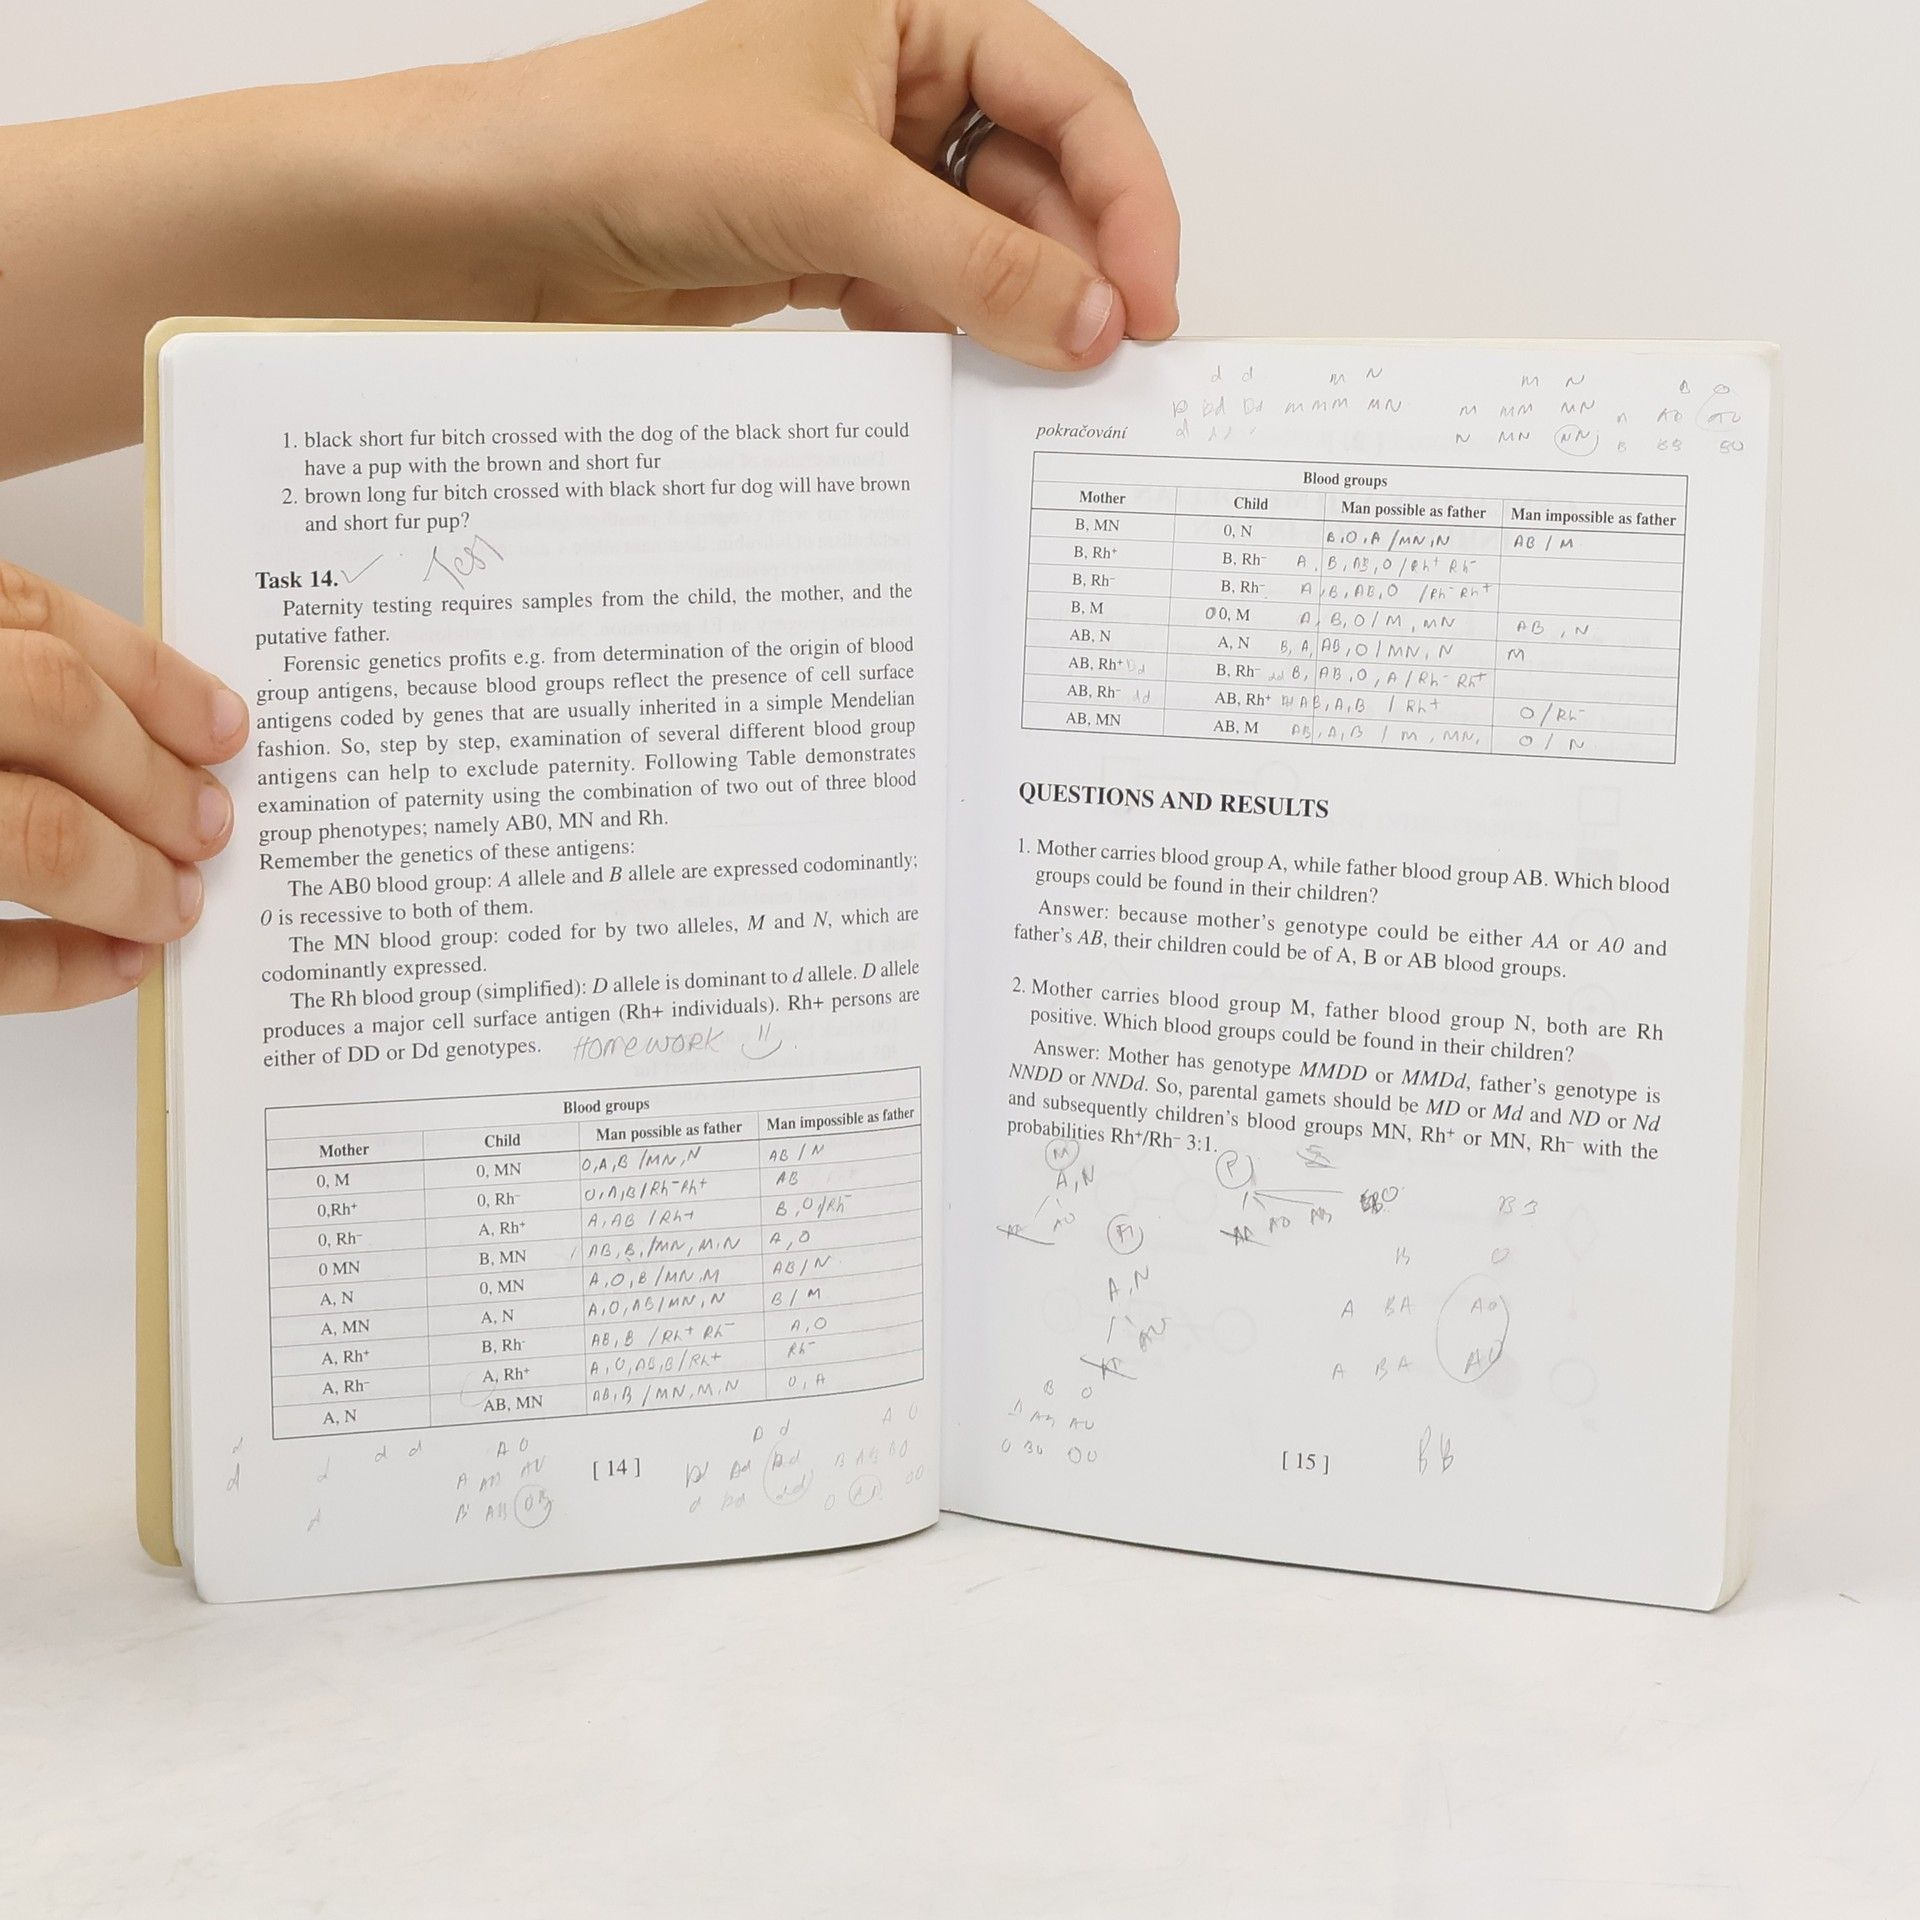 1. black short fur bitch crossed with the dog of the black short fur could
have a pup with the brown and short fur
2. brown long fur bitch crossed with black short fur dog will have brown
and short fur pup?
Test
Task 14.
Paternity testing requires samples from the child, the mother, and the
putative father.
Forensic genetics profits e.g. from determination of the origin of blood
group antigens, because blood groups reflect the presence of cell surface
antigens coded by genes that are usually inherited in a simple Mendelian
fashion. So, step by step, examination of several different blood group
antigens can help to exclude paternity. Following Table demonstrates
examination of paternity using the combination of two out of three blood
group phenotypes; namely AB0, MN and Rh.
Remember the genetics of these antigens:
The AB0 blood group: A allele and B allele are expressed codominantly;
0 is recessive to both of them.
The MN blood group: coded for by two alleles, M and N, which are
codominantly expressed.
The Rh blood group (simplified): D allele is dominant to d allele. D allele
produces a major cell surface antigen (Rh+ individuals). Rh+ persons are
either of DD or Dd genotypes. HOMEWORK
Blood groups
Mother Child Man possible as father Man impossible as father
0, M 0, MN 0,A,B /MN,N AB / N
0,Rh⁺ 0, Rh⁻ 0,A,B/Rh⁻Rh⁺ AB
0, Rh⁻ A, Rh⁺ A,AB /Rh+ B,0/Rh⁻
0 MN B, MN AB,B,/MN,M,N A,0
A, N 0, MN A,0,B/MN,M AB/N
A, MN A, N A,0,AB/MN,N B/M
A, Rh⁺ B, Rh⁻ AB,B /Rh⁺ Rh⁻ A,0
A, Rh⁻ A, Rh⁺ A,0,AB,B/Rh+ Rh⁻
A, N AB, MN AB,B /MN,M,N 0,A
[ 14 ]
pokračování
Blood groups
Mother Child Man possible as father Man impossible as father
B, MN 0, N B,0,A /MN,N AB / M
B, Rh⁺ B, Rh⁻ A, B, AB,0 /Rh⁺ Rh⁻
B, Rh⁻ B, Rh⁻ A,B,AB,0 /Rh⁻ Rh⁺
B, M 0, M A, B,0/M,MN AB,N
AB, N A, N B, A, AB,0/MN,N M
AB, Rh⁺ Dd B, Rh⁻ dd B, AB,0,A/Rh⁻ Rh⁺
AB, Rh⁻ dd AB, Rh⁺ AB,A,B / Rh+ 0/Rh⁻
AB, MN AB, M AB,A,B / M,MN, 0 / N
QUESTIONS AND RESULTS
1. Mother carries blood group A, while father blood group AB. Which blood
groups could be found in their children?
Answer: because mother's genotype could be either AA or A0 and
father's AB, their children could be of A, B or AB blood groups.
2. Mother carries blood group M, father blood group N, both are Rh
positive. Which blood groups could be found in their children?
Answer: Mother has genotype MMDD or MMDd, father's genotype is
NNDD or NNDd. So, parental gamets should be MD or Md and ND or Nd
and subsequently children's blood groups MN, Rh⁺ or MN, Rh⁻ with the
probabilities Rh⁺/Rh⁻ 3:1.
[ 15 ]